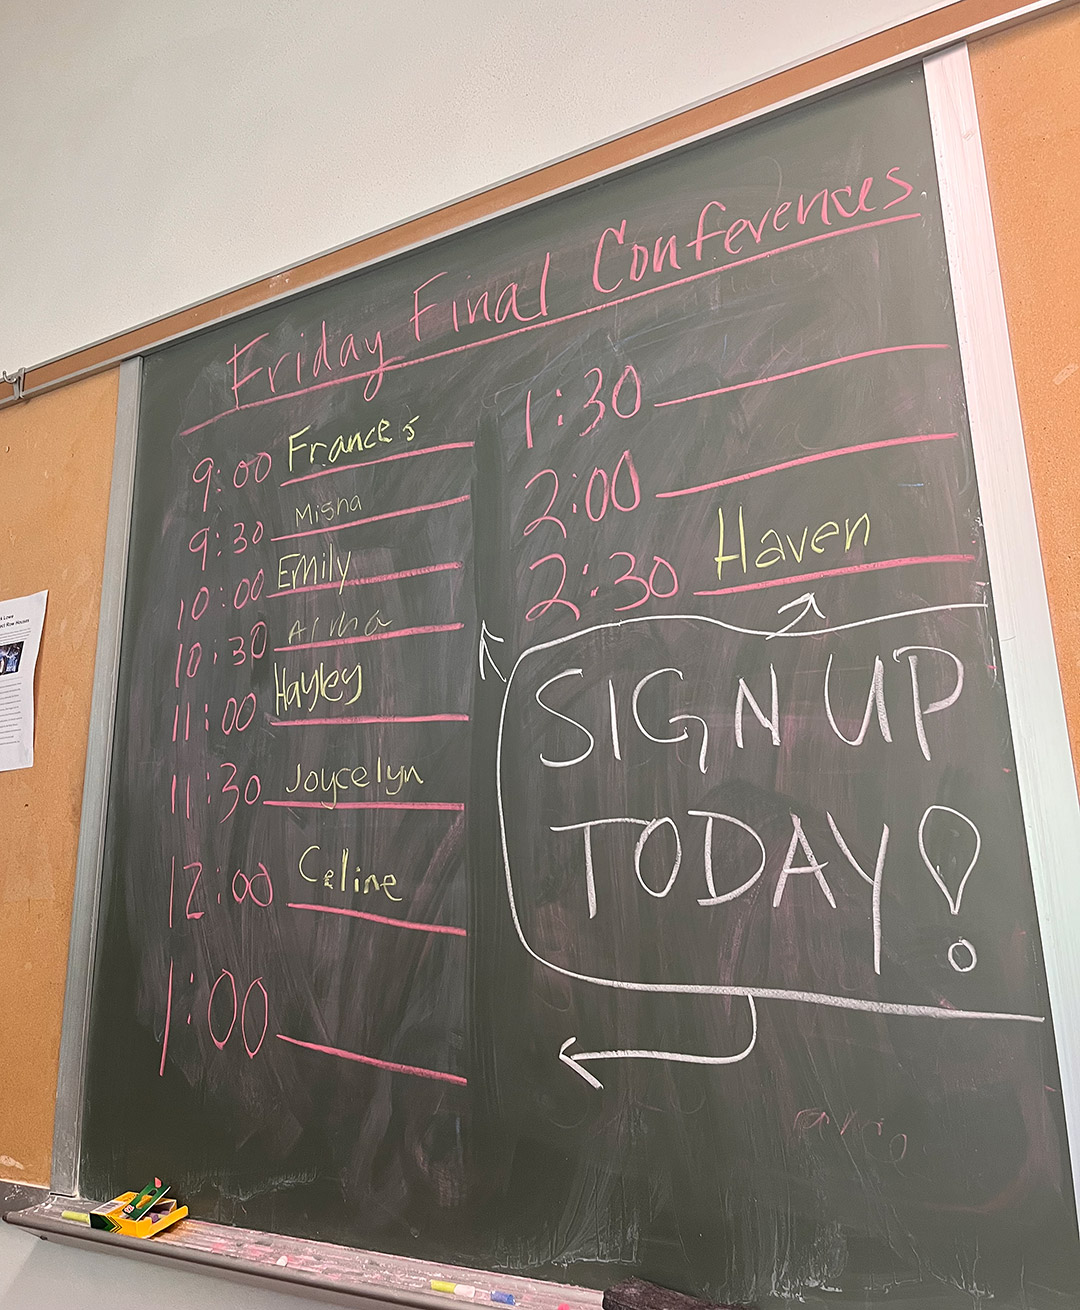 Friday Final Conferences
9:00 Frances
9:30 Misha
10:00 Emily
10:30 Alma
11:00 Hayley
11:30 Joycelyn
12:00 Celine
1:00
1:30
2:00
2:30 Haven
SIGN UP
TODAY!